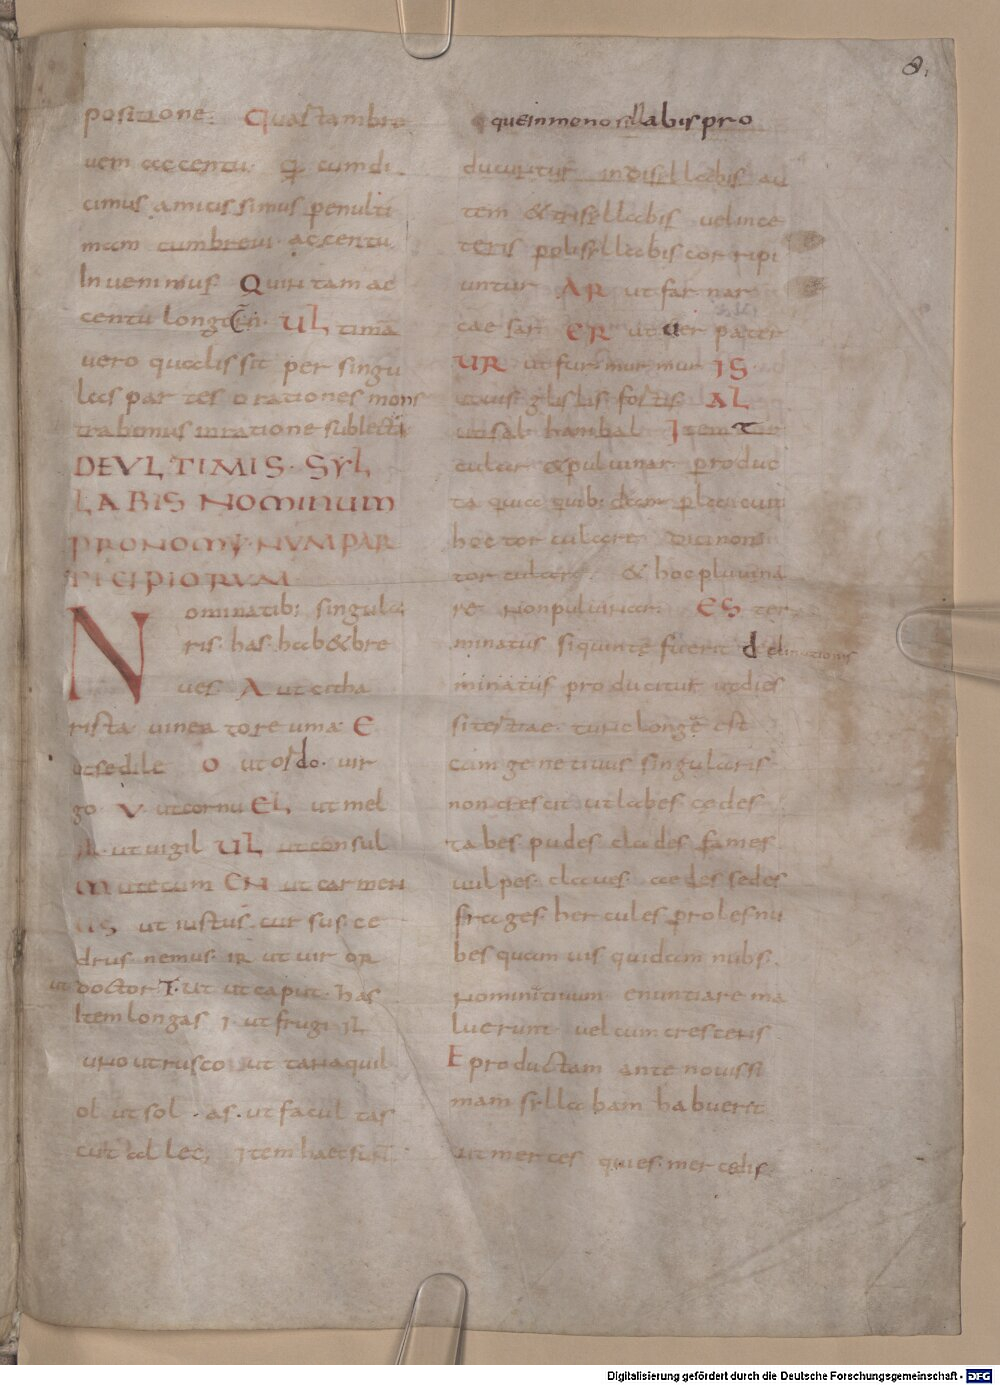 8.
positione. Quas tam bre
uem accentu. q cum di
cimus amicissimus penulti
mam cum breui accentu
Inuenimus. Quin tam ac
centu longam. UL timā
uero qualis sit per singu
las partes orationes mons
trabimus in ratione sublecti
DEULTIMIS. SYL
LABIS NOMINUM
PRONOMI. NUM PAR
TICIPIORUM
Nominatib; singula
ris. has. hab&bre
ues. A ut citha
rista uinea toreuma. E
ut sedile O ut ordo. uir
go V ut cornu EL ut mel
IL. ut uigil UL ut consul
M ut tecum EN ut carmen
US ut iustus cursus ce
drus nemus. IR ut uir OR
ut doctor T. UT ut caput. has
Item longas I. ut frugi IL
uno ut rusco ut tanaquil
ol ut sol. as. ut facultas
aut al lec; Item haec sunt
que in monosyllabis pro
ducuntur in disyllabis au
tem & trisyllabis uel in ce
teris polisyllabis corripi
untur AR ut far nar
caesar ER ut uer pater
UR ut fur. murmur IS
ut uis. glis lis. fortis AL
ut sal hannibal Item Tor
cular & puluinar produc
ta quia quib; dam placuit
hoc torculare dici non
torcular. & hoc pluuina
re non puluinar. ES ter
minatus si quinte fuerit declinationis
minatus producitur ut dies
sites tiae. turue longe est
cum genetiuus singularis
non crescit ut labes cedes
tabes pudes clades fames
uulpes. claues. aedes sedes
strages. hercules. proles nu
bes quam uis quidam nubs.
Nominitiuum enuntiare ma
luerunt uel cum cresceris
E productam ante nouissi
mam syllabam habuerit
ut merces quies. mercedis
Digitalisierung gefördert durch die Deutsche Forschungsgemeinschaft - DFG